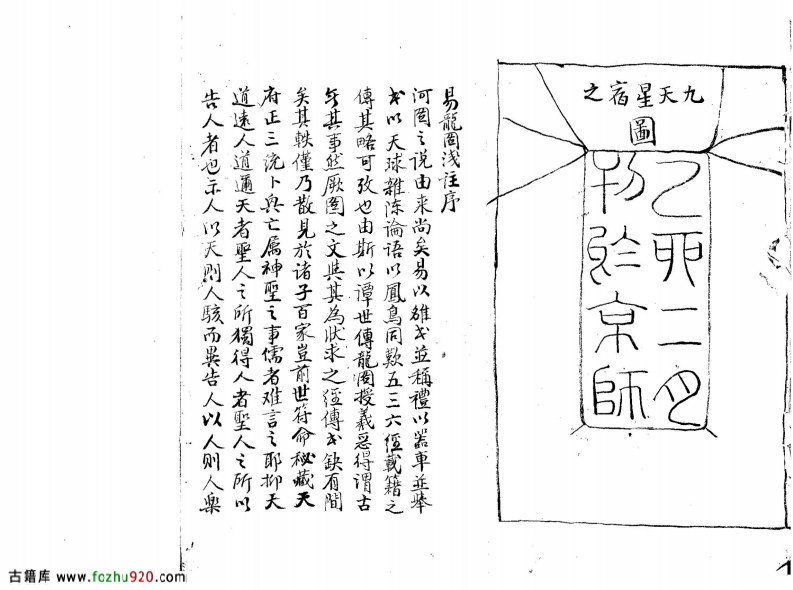 九天星宿之
圖
乙卯二月
刊於京師
易龍圖淺註序
河圖之说由来尚矣易以雒書並稱禮以器車並舉
書以天球雜陈論语以鳳鳥同歎五三六經載籍之
傳其略可攷也由斯以谭世傳龍圖授羲惡得谓古
無其事然厥圖之文與其為狀求之經傳書缺有間
矣其軼僅乃散見於诸子百家豈前世符命秘藏天
府正三浣卜與亡屬神聖之事儒者难言之耶抑天
道遠人道邇天者聖人之所獨得人者聖人之所以
告人者也示人以天則人駭而異告人以人則人樂
古籍库 www.fozhu920.com
1